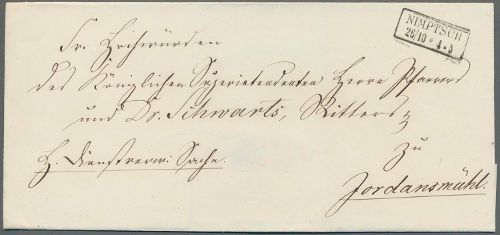 NIMPTSCH
26/10 * 4-5
Sr. Hochwürden
des Königlichen Superintendenten Herrn Pfarrers
und Dr. Schwarts, Ritters
zu
H. Dienstverw: Sache.
Jordansmühl.